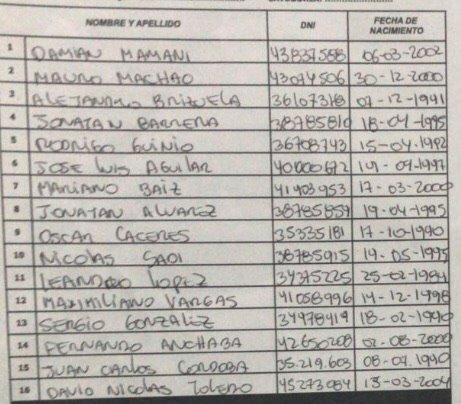 NOMBRE Y APELLIDO DNI FECHA DE NACIMIENTO
1 DAMIAN MAMANI 43837588 06-03-2002
2 MAURO MACHAO 43074506 30-12-2000
3 ALEJANDRO BRIZUELA 36107318 07-12-1991
4 JONATAN BARRERA 38785810 18-04-1995
5 RODRIGO GUINIO 36708743 15-04-1992
6 JOSE LUIS AGUILAR 40000672 14-07-1997
7 MARIANO BAIZ 41403953 17-03-2000
8 JONATAN ALVAREZ 38785859 19-04-1995
9 OSCAR CACERES 35335181 17-10-1990
10 NICOLAS SADI 38785915 14-05-1995
11 LEANDRO LOPEZ 25-02-1984
12 MAXIMILIANO VARGAS 41058996 14-12-1998
13 SERGIO GONZALEZ 34978419 18-02-1990
14 FERNANDO ANCHABA 42650208 02-08-2000
15 JUAN CARLOS CORDOBA 35.219.603 08-07.1990
16 DAVID NICOLAS TOLEDO 45273084 13-03-2004